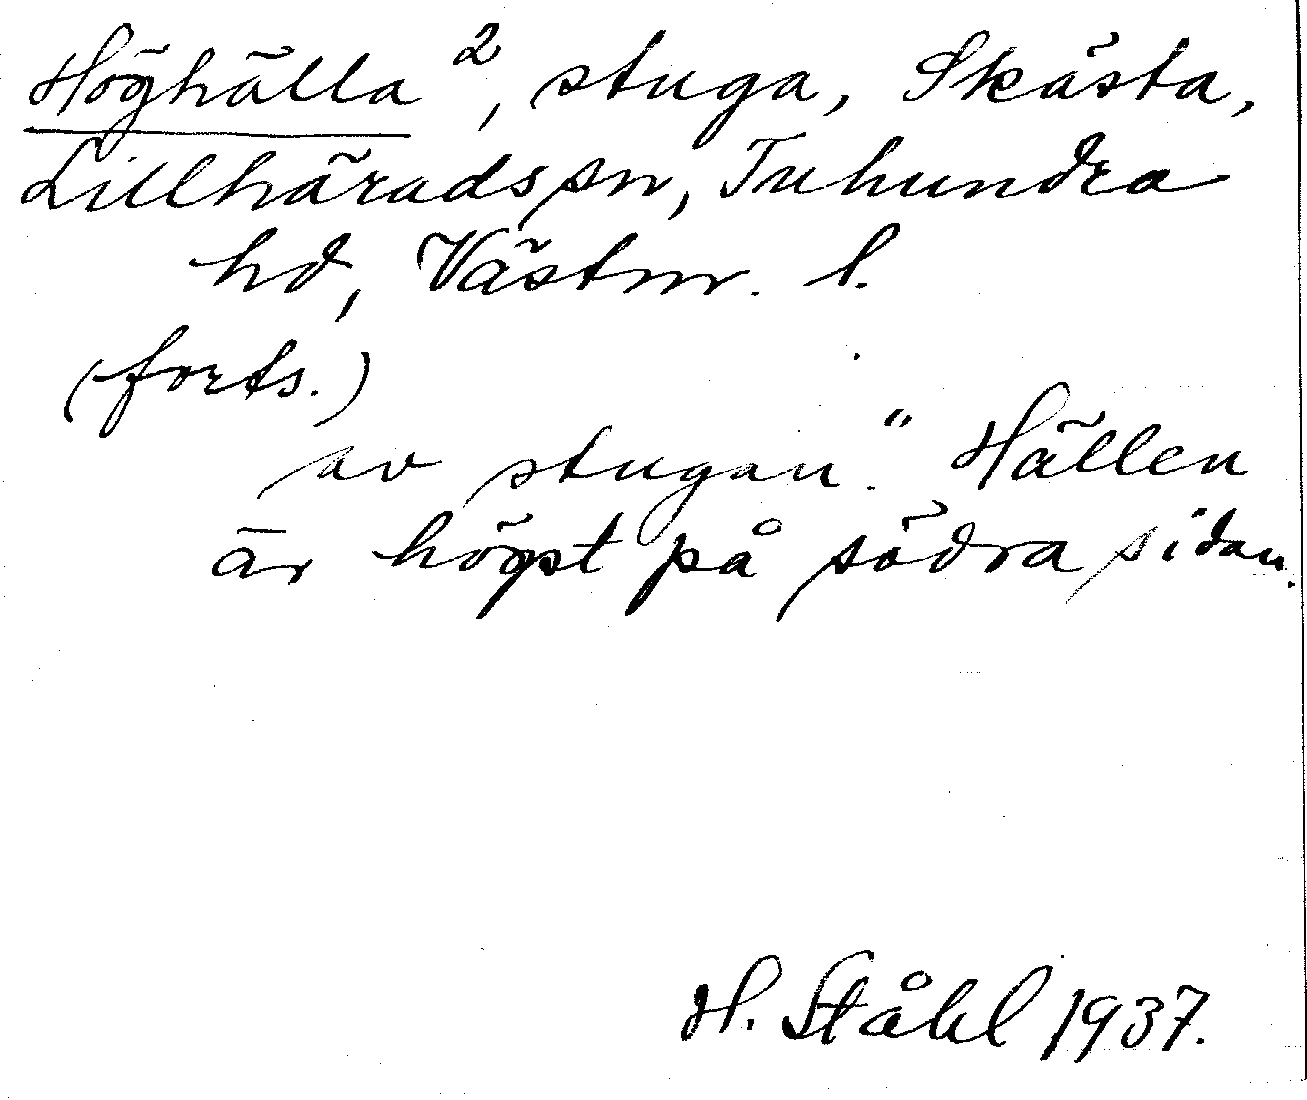 Höghälla ², stuga, Skästa,
Lillhäradssn, Tuhundra
hd, Västm. l.
(forts.)
av stugan." Hällen
är högst på södra sidan.
H. Ståhl 1937.